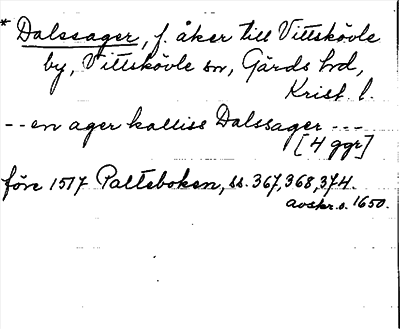 * Dalssager, f. åker till Vittskövle
by, Vittskövle sn, Gärds hd,
Krist. l.
-- en ager kalliss Dalssager ---
[4 ggr]
före 1517 Palteboken, ss. 367, 368, 374.
avskr. o. 1650.